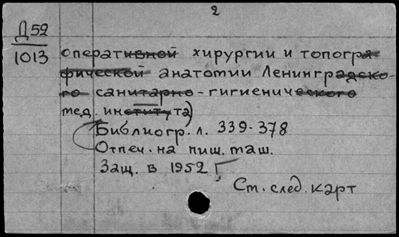 2
Д52
1013
оперативной хирургии и топогра-
фической анатомии Ленинградско-
го санитарно-гигиенического
мед. института)
Библиогр. л. 339-378
Отпеч. на пиш. маш.
Защ. в 1952 г
См. след. карт